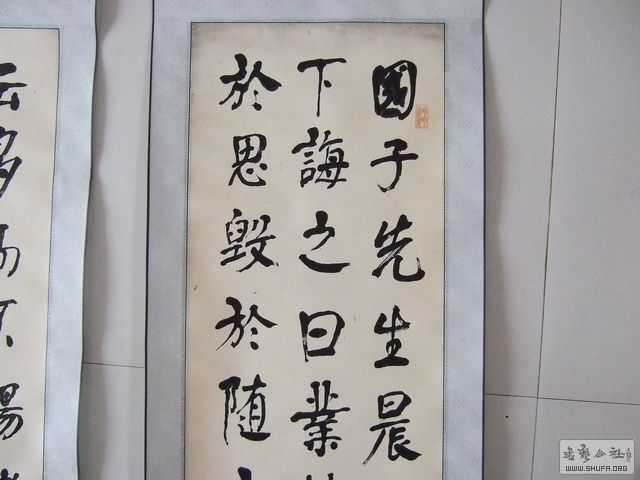 國子先生晨
下誨之曰業
於思毀於随
云多
書艺公社
WWW.SHUFA.ORG